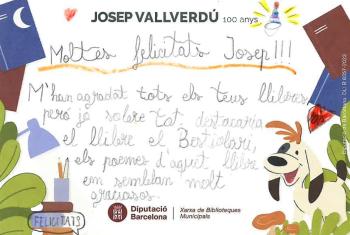 JOSEP VALLVERDÚ 100 anys
Moltes felicitats Josep!!!
M'han agradat tots els teus llibres
però jo sobre tot destacaria
el llibre el Bestiolari
els poemes d'aquet llibre
em semblan molt
graciosos.
FELICITATS
Diputació
Barcelona
Xarxa de Biblioteques
Municipals